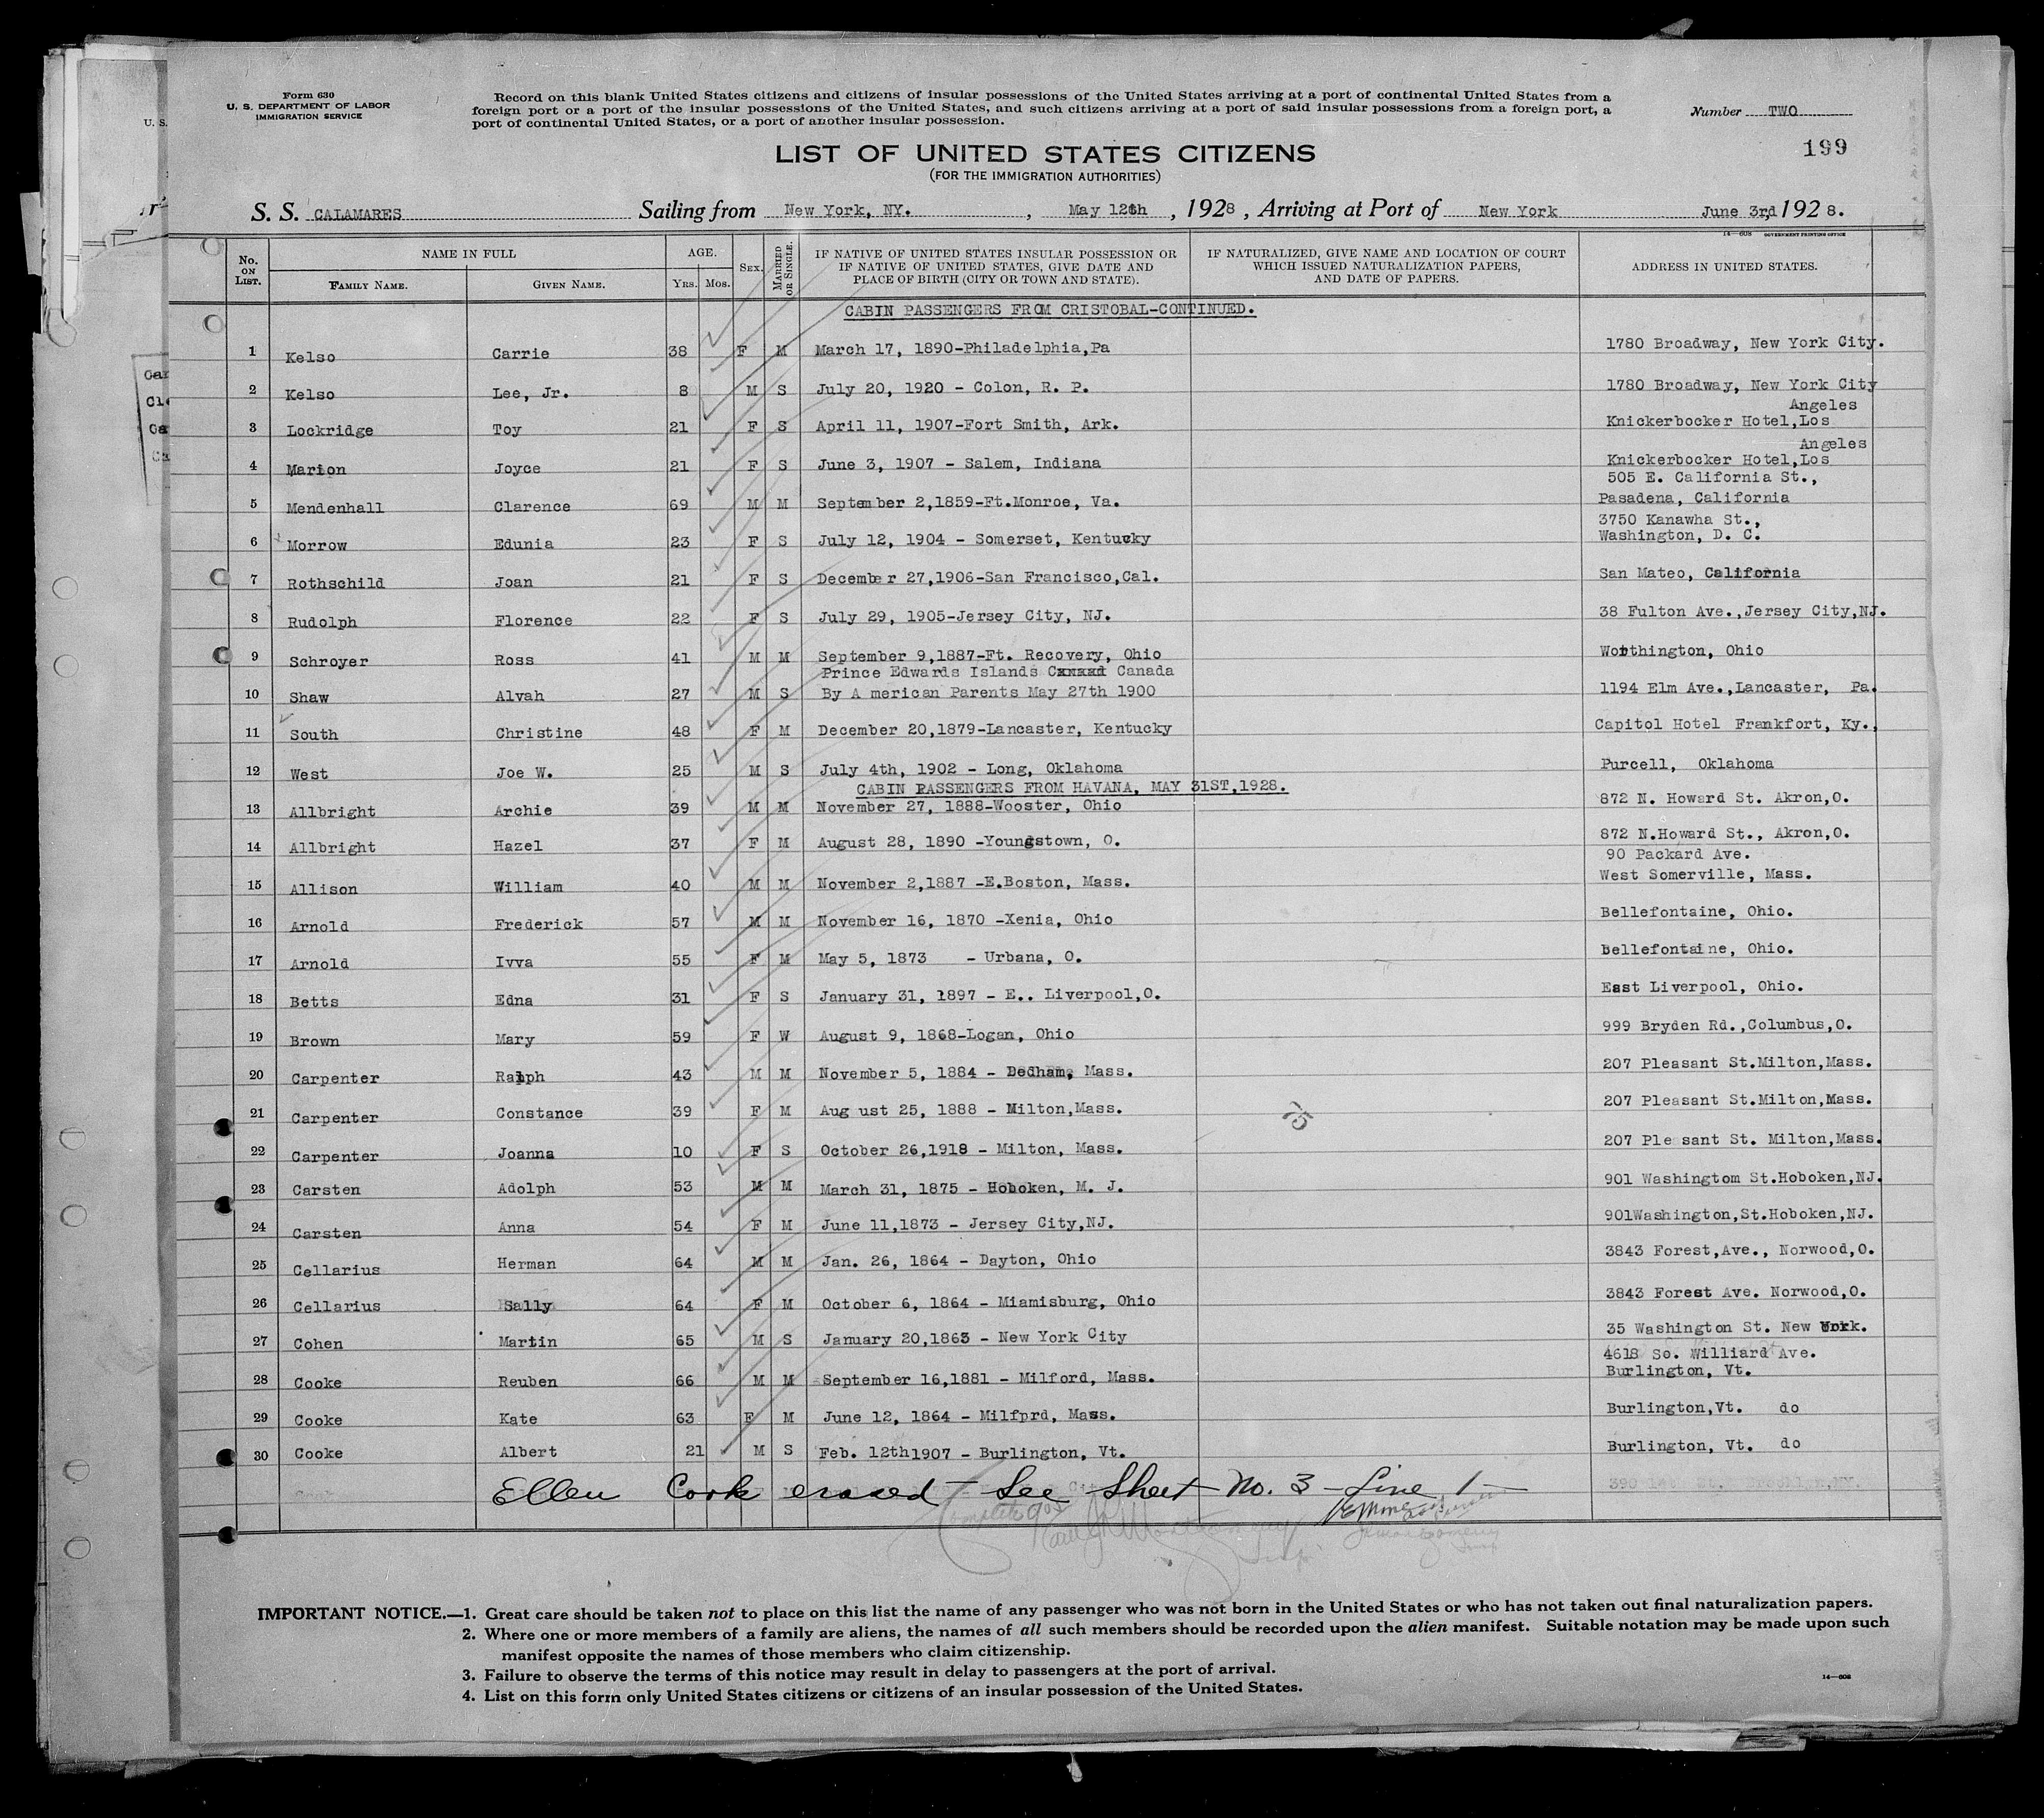 Form 630
U. S. DEPARTMENT OF LABOR
IMMIGRATION SERVICE
Record on this blank United States citizens and citizens of insular possessions of the United States arriving at a port of continental United States from a
foreign port or a port of the insular possessions of the United States, and such citizens arriving at a port of said insular possessions from a foreign port, a
port of continental United States, or a port of another insular possession.
Number TWO
199
LIST OF UNITED STATES CITIZENS
(FOR THE IMMIGRATION AUTHORITIES)
S. S. CALAMARES Sailing from New York, NY. , May 12th , 1928 , Arriving at Port of New York June 3rd, 1928.
14—608 GOVERNMENT PRINTING OFFICE
No. ON LIST. NAME IN FULL FAMILY NAME. GIVEN NAME. AGE. YRS. MOS. SEX. MARRIED OR SINGLE. IF NATIVE OF UNITED STATES INSULAR POSSESSION OR IF NATIVE OF UNITED STATES, GIVE DATE AND PLACE OF BIRTH (CITY OR TOWN AND STATE). IF NATURALIZED, GIVE NAME AND LOCATION OF COURT WHICH ISSUED NATURALIZATION PAPERS, AND DATE OF PAPERS. ADDRESS IN UNITED STATES.
CABIN PASSENGERS FROM CRISTOBAL-CONTINUED.
1 Kelso Carrie 38 F M March 17, 1890-Philadelphia,Pa 1780 Broadway, New York City.
2 Kelso Lee, Jr. 8 M S July 20, 1920 - Colon, R. P. 1780 Broadway, New York City
Angeles
3 Lockridge Toy 21 F S April 11, 1907-Fort Smith, Ark. Knickerbocker Hotel,Los
Angeles
4 Marion Joyce 21 F S June 3, 1907 - Salem, Indiana Knickerbocker Hotel,Los
505 E. California St.,
5 Mendenhall Clarence 69 M M September 2,1859-Ft.Monroe, Va. Pasadena, California
3750 Kanawha St.,
6 Morrow Edunia 23 F S July 12, 1904 - Somerset, Kentucky Washington, D. C.
7 Rothschild Joan 21 F S December 27,1906-San Francisco,Cal. San Mateo, California
8 Rudolph Florence 22 F S July 29, 1905-Jersey City, NJ. 38 Fulton Ave.,Jersey City,NJ.
9 Schroyer Ross 41 M M September 9,1887-Ft. Recovery, Ohio Worthington, Ohio
Prince Edwards Islands Canada
10 Shaw Alvah 27 M S By A merican Parents May 27th 1900 1194 Elm Ave.,Lancaster, Pa.
11 South Christine 48 F M December 20,1879-Lancaster, Kentucky Capitol Hotel Frankfort, Ky.,
12 West Joe W. 25 M S July 4th, 1902 - Long, Oklahoma Purcell, Oklahoma
CABIN PASSENGERS FROM HAVANA, MAY 31ST,1928.
13 Allbright Archie 39 M M November 27, 1888-Wooster, Ohio 872 N. Howard St. Akron,O.
14 Allbright Hazel 37 F M August 28, 1890 -Youngstown, O. 872 N.Howard St., Akron,O.
90 Packard Ave.
15 Allison William 40 M M November 2,1887 -E.Boston, Mass. West Somerville, Mass.
16 Arnold Frederick 57 M M November 16, 1870 -Xenia, Ohio Bellefontaine, Ohio.
17 Arnold Ivva 55 F M May 5, 1873 - Urbana, O. Bellefontaine, Ohio.
18 Betts Edna 31 F S January 31, 1897 - E.. Liverpool,O. East Liverpool, Ohio.
19 Brown Mary 59 F W August 9, 1868-Logan, Ohio 999 Bryden Rd.,Columbus,O.
20 Carpenter Ralph 43 M M November 5, 1884 - Dedham, Mass. 207 Pleasant St.Milton,Mass.
21 Carpenter Constance 39 F M Aug ust 25, 1888 - Milton,Mass. 207 Pleasant St.Milton,Mass.
75
22 Carpenter Joanna 10 F S October 26,1918 - Milton, Mass. 207 Ple sant St. Milton,Mass.
23 Carsten Adolph 53 M M March 31, 1875 - Hoboken, M. J. 901 Washingtom St.Hoboken,NJ.
24 Carsten Anna 54 F M June 11,1873 - Jersey City,NJ. 901Washington,St.Hoboken,NJ.
25 Cellarius Herman 64 M M Jan. 26, 1864 - Dayton, Ohio 3843 Forest,Ave., Norwood,O.
26 Cellarius Sally 64 F M October 6, 1864 - Miamisburg, Ohio 3843 Forest Ave. Norwood,O.
27 Cohen Martin 65 M S January 20,1863 - New York City 35 Washington St. New York.
4618 So. Williard Ave.
28 Cooke Reuben 66 M M September 16,1881 - Milford, Mass. Burlington, Vt.
29 Cooke Kate 63 F M June 12, 1864 - Milfprd, Mass. Burlington,Vt. do
30 Cooke Albert 21 M S Feb. 12th1907 - Burlington, Vt. Burlington, Vt. do
Ellen Cook erased - See Sheet No. 3 - Line 1 -
IMPORTANT NOTICE.—1. Great care should be taken not to place on this list the name of any passenger who was not born in the United States or who has not taken out final naturalization papers.
2. Where one or more members of a family are aliens, the names of all such members should be recorded upon the alien manifest. Suitable notation may be made upon such
manifest opposite the names of those members who claim citizenship.
3. Failure to observe the terms of this notice may result in delay to passengers at the port of arrival.
4. List on this form only United States citizens or citizens of an insular possession of the United States.
14—608